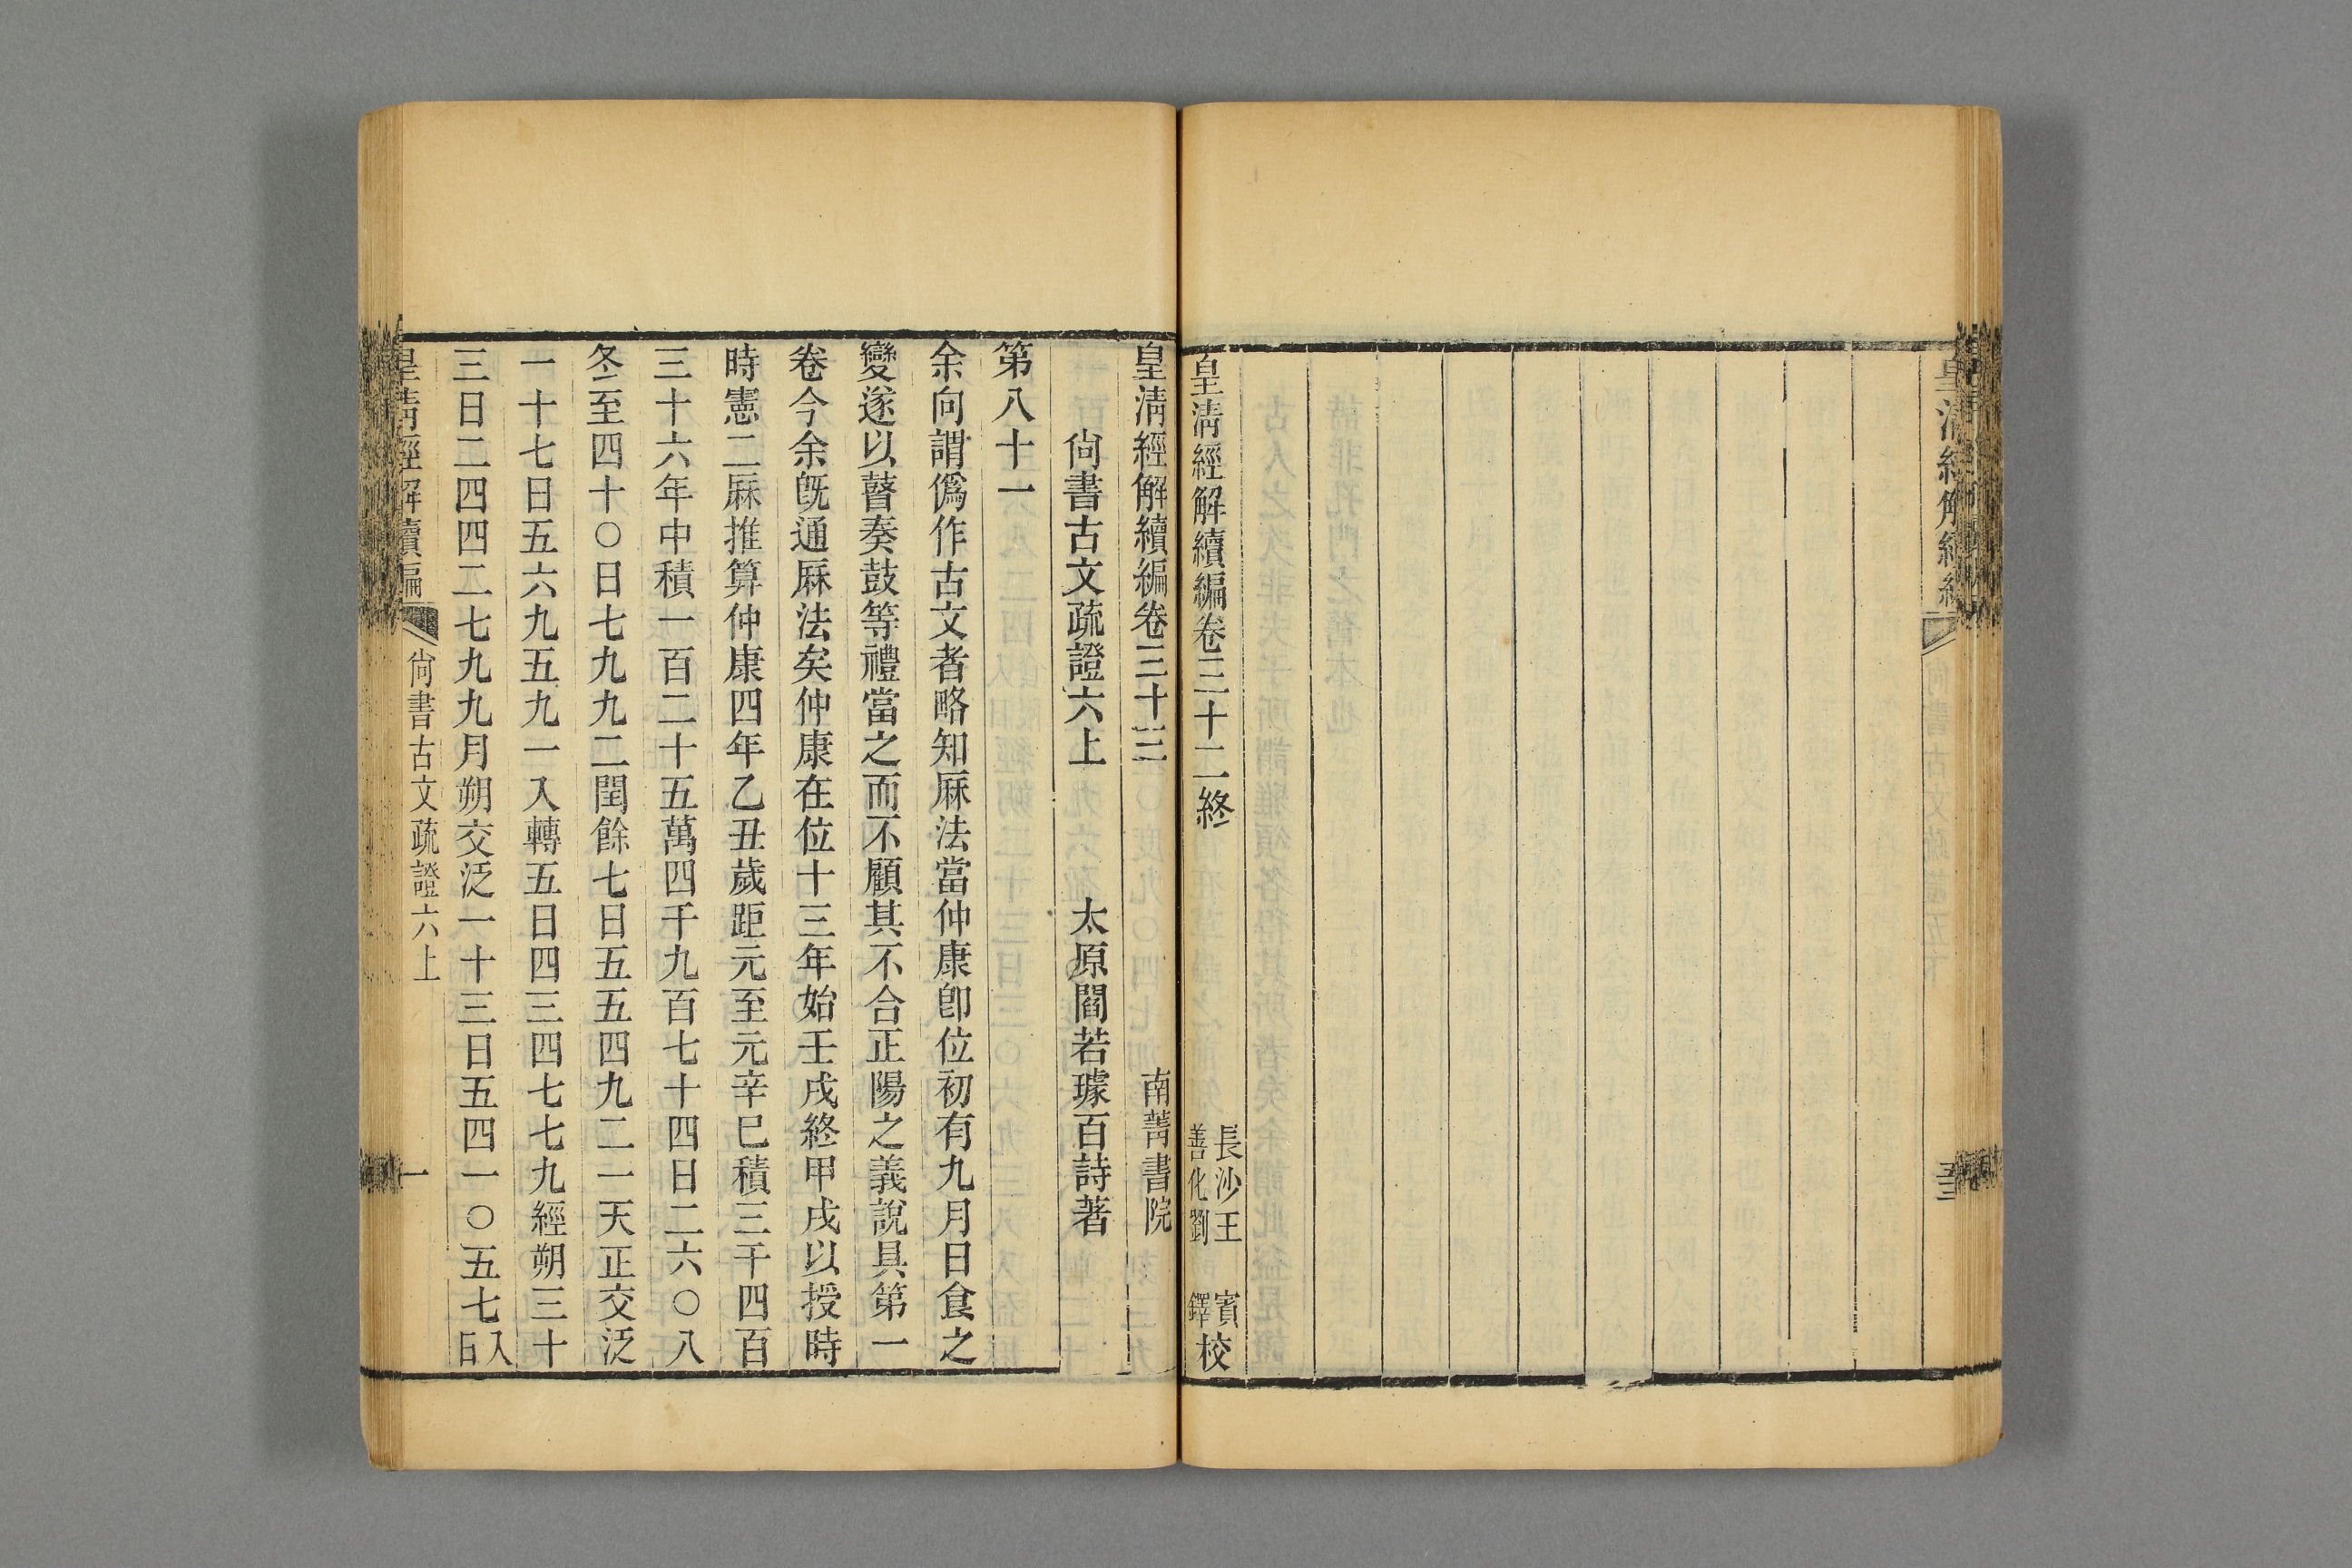 皇清經解續編卷三十二終
長沙王賓
善化劉鐸
校
皇清經解續編卷三十三
南菁書院
尙書古文疏證六上
太原閻若璩百詩著
第八十一
余向謂僞作古文者略知厤法當仲康卽位初有九月日食之
變遂以瞽奏鼓等禮當之而不顧其不合正陽之義說具第一
卷今余旣通厤法矣仲康在位十三年始壬戌終甲戌以授時
時憲二厤推算仲康四年乙丑歲距元至元辛巳積三千四百
三十六年中積一百二十五萬四千九百七十四日二六〇八
冬至四十〇日七九九二閏餘七日五五四九二一天正交泛
一十七日五六九五九一入轉五日四三四七七九經朔三十
三日二四四二七九九月朔交泛一十三日五四一〇五七入
尙書古文疏證六上
一